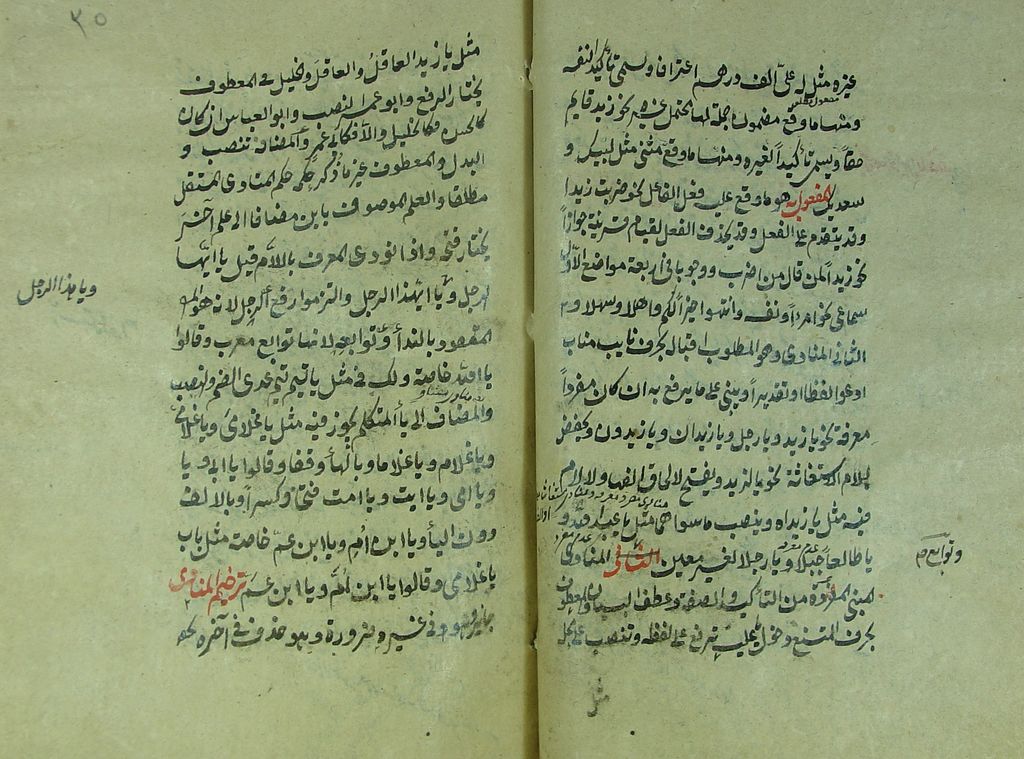 غيره مثل له علي الف درهم اعترافا ويسمي تأكيدا لنفسه
ومنها ما وقع مضمون جملة لها محتمل غيره نحو زيد قايم
حقاً ويسمي تأكيداً لغيره ومنها ما وقع مثني مثل لبيك و
سعديك المفعول به هو ما وقع عليه فعل الفاعل نحو ضربت زيدا
وقد يتقدم علي الفعل وقد يحذف الفعل لقيام قرينة جوازاً
نحو زيداً لمن قال من اضرب ووجوبا في اربعة مواضع الاول
سماعي نحو امرءاً ونفسه وانتهوا خيراً لكم واهلا وسهلا و
الثاني المنادي وهو المطلوب اقباله بحرف نايب مناب
ادعوا لفظا او تقديراً ويبني علي ما يرفع به ان كان مفرداً
معرفة نحو يا زيد ويا رجل ويا زيدان ويا زيدون ويخفض
بلام الاستغاثة نحو يا لزيد ويفتح لالحاق الفها ولا لام
فيه مثل يا زيداه وينصب ما سواهما مثل يا عبد الله و
يا طالعاً جبلا ويا رجلا لغير معين المنادي
المبني المفردة من التأكيد والصفة وعطف البيان والمعطوف
بحرف الممتنع دخول يا عليه ترفع علي لفظه وتنصب علي محله
مثل
وتوابع
٣٥
مثل يا زيد العاقلُ والعاقلَ والخليل في المعطوف
يختار الرفع وابو عمر النصب وابو العباس ان كان
كالحسن فكالخليل والا فكابي عمر والمضافة تنصب و
البدل والمعطوف غير ما ذكر حكمه حكم المنادي المستقل
مطلقا والعلم الموصوف بابن مضافا الي علم آخر
يختار فتحه واذا نودي المعرف باللام قيل يا ايها
الرجل ويا ايهذا الرجل والتزموا رفع الرجل لانه هو
المقصود بالندأ وتوابعه لانها توابع معرب وقالوا
يا الله خاصة ولك في مثل يا تيم تيم عدي الضم والنصب
والمضاف الي يأ المتكلم يجوز فيه مثل يا غلامي ويا غلامي
ويا غلام ويا غلاما وبالهأ وقفا وقالوا يا ابي و يا
ويا امي ويا ابت ويا امت فتحاً وكسراً وبالالف
دون اليأ ويا ابن ام ويا ابن عم خاصة مثل باب
يا غلامي وقالوا يا ابن ام ويا ابن عم ترخيم المنادي
جايز وهو في غيره ضرورة وهو حذف في آخره
ويا هذا الرجل